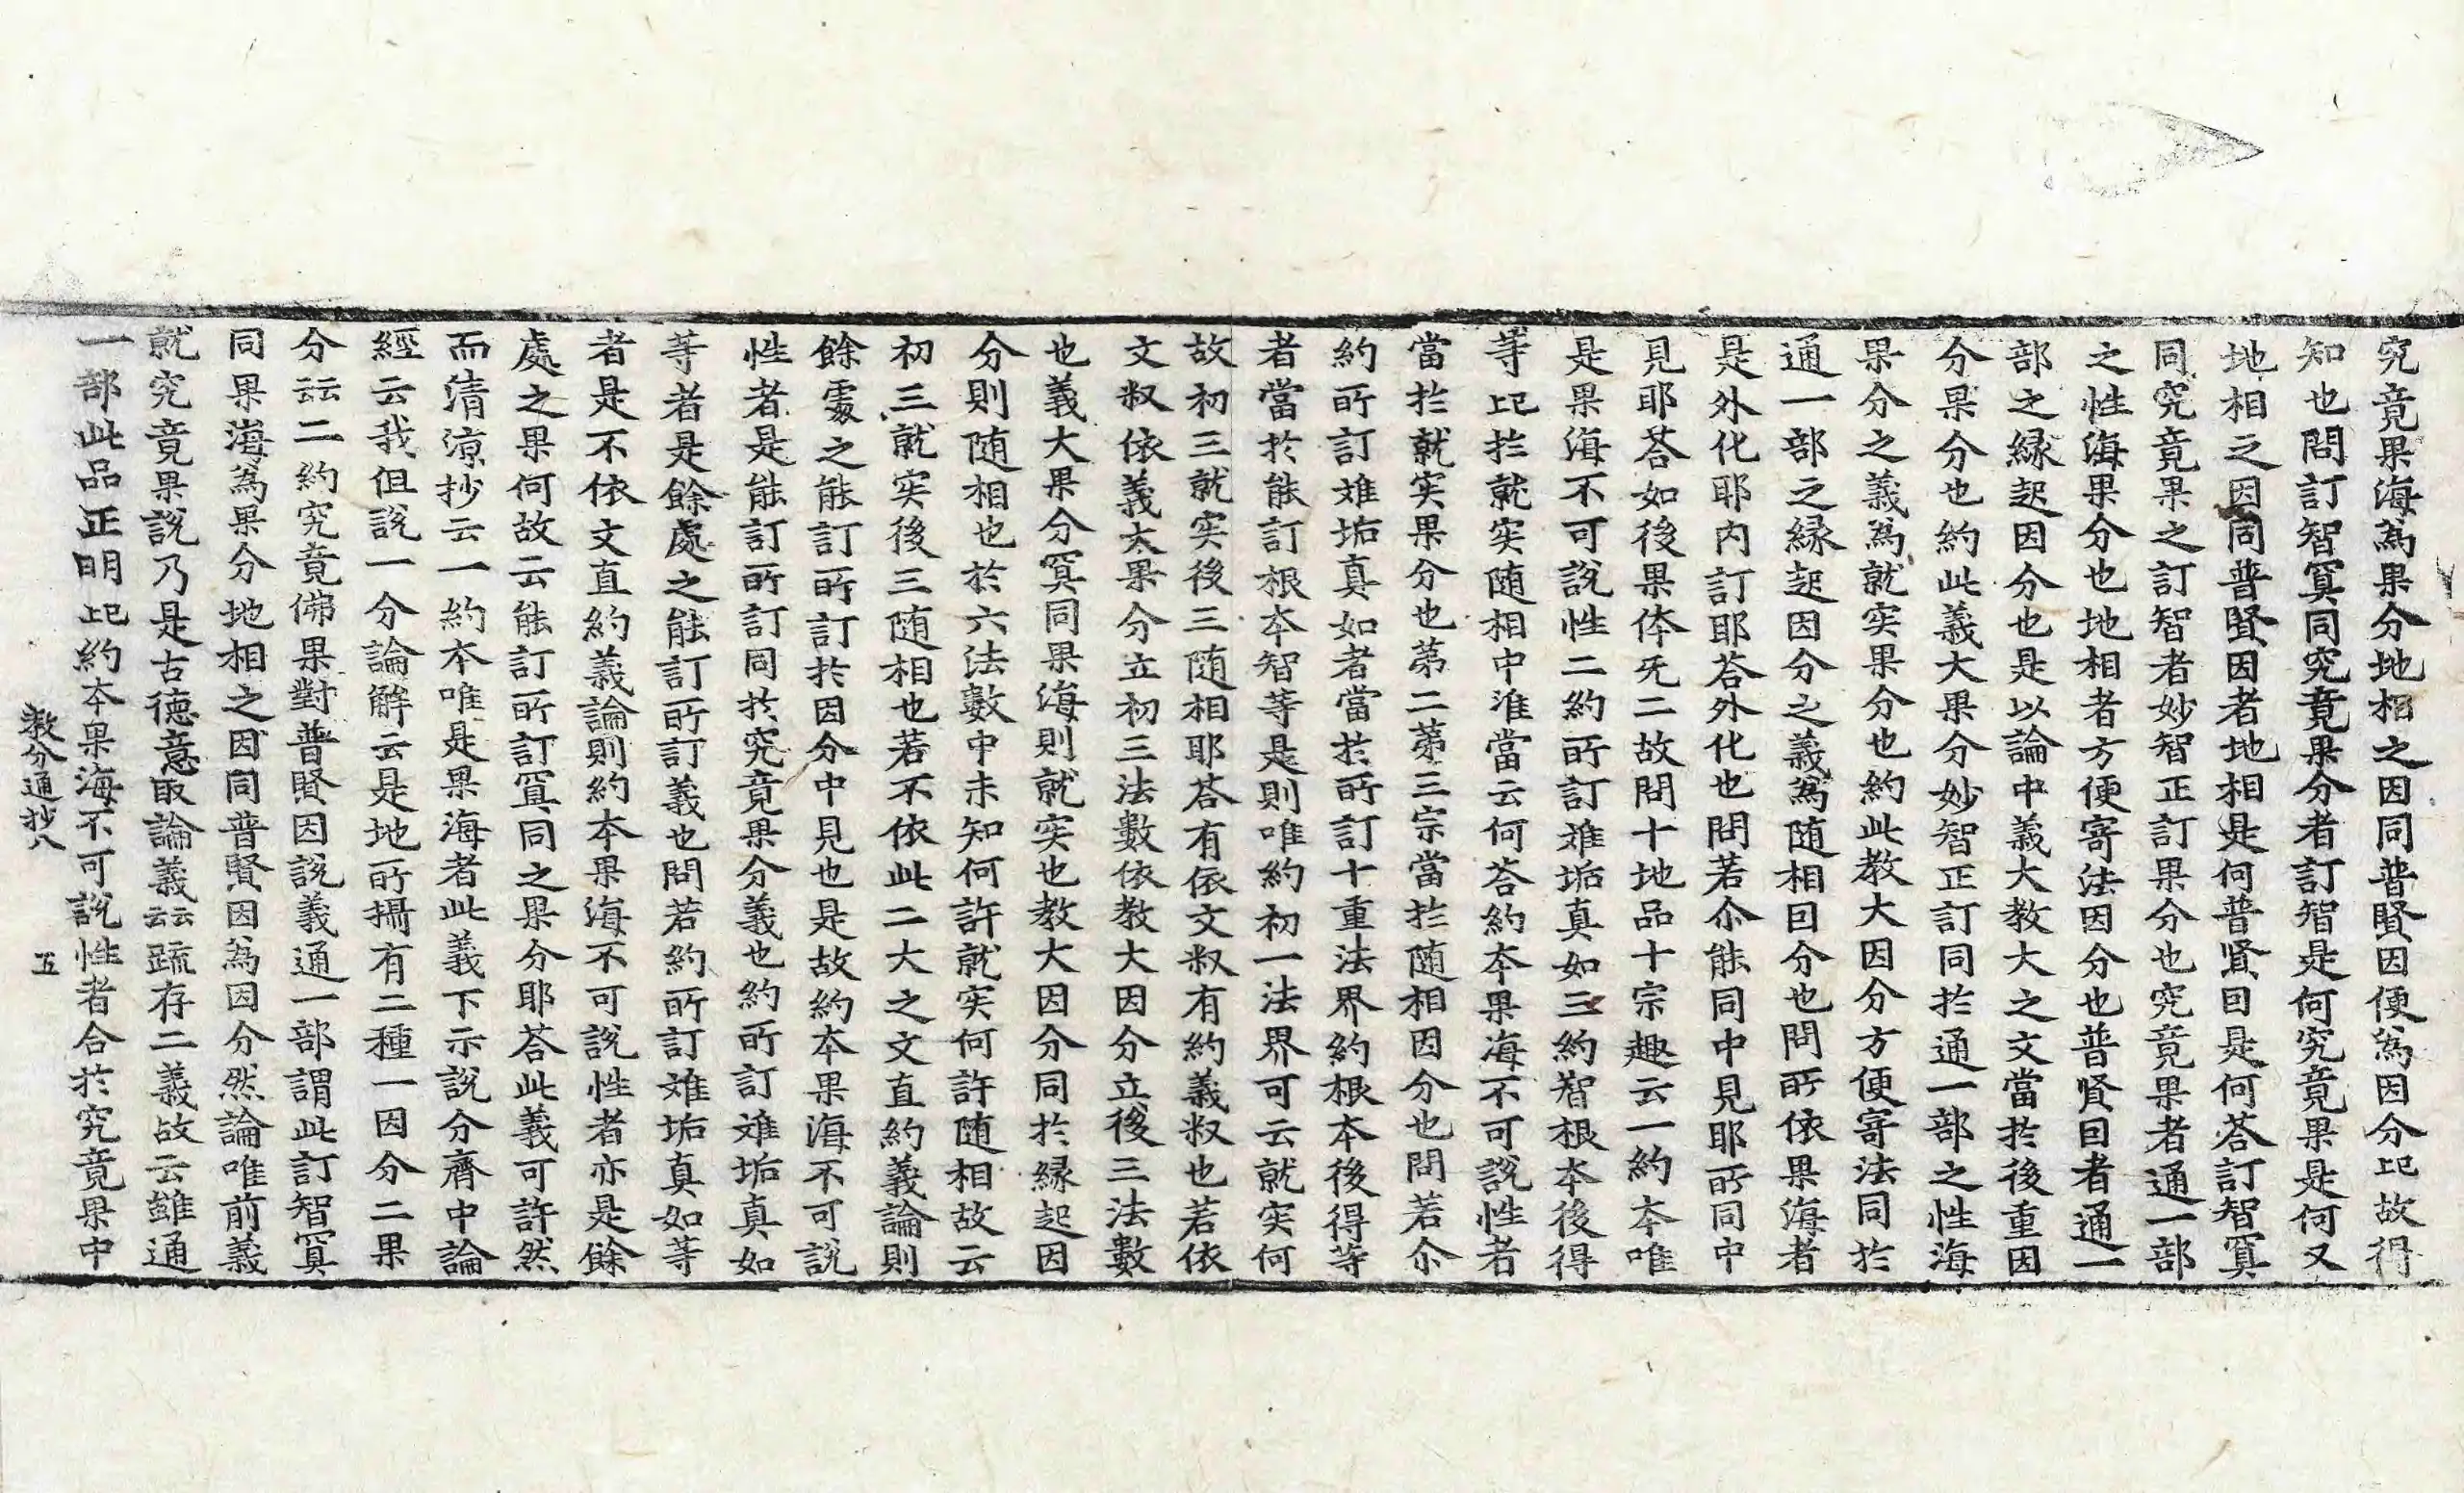 究竟果海為果分地相之因同普賢因便為因分㐲故得
知也問訂智冥同究竟果分者訂智是何究竟果是何又
地相之因同普賢因者地相是何普賢因是何荅訂智冥
同究竟果之訂智者妙智正訂果分也究竟果者通一部
之性海果分也地相者方便寄法因分也普賢因者通一
部之縁起因分也是以論中義大教大之文當扵後重因
分果分也約此義大果分妙智正訂同扵通一部之性海
果分之義為就实果分也約此教大因分方便寄法同扵
通一部之縁起因分之義為随相因分也問所依果海者
是外化耶内訂耶荅外化也問若尒能同中見耶所同中
見耶荅如後果体旡二故問十地品十宗趣云一約夲唯
是果海不可說性二約所訂難垢真如三約智根夲後得
等㐲扵就实随相中准當云何荅約夲果海不可說性者
當扵就实果分也苐二苐三宗當扵随相因分也問若尒
約所訂難垢真如者當扵所訂十重法界約根夲後得等
者當扵能訂根夲智等是則唯約初一法界可云就实何
故初三就实後三随相耶荅有依文㕘有約義㕘也若依
文㕘依義大果分立初三法數依教大因分立後三法數
也義大果分冥同果海則就实也教大因分同扵縁起因
分則随相也扵六法數中未知何許就实何許随相故云
初三就实後三随相也若不依此二大之文直約義論則
餘處之能訂所訂扵因分中見也是故約夲果海不可說
性者是能訂所訂同扵究竟果分義也約所訂難垢真如
等者是餘處之能訂所訂義也問若約所訂難垢真如等
者是不依文直約義論則約夲果海不可說性者亦是餘
處之果何故云能訂所訂冥同之果分耶荅此義可許然
而清涼抄云一約夲唯是果海者此義下示說分齊中論
經云我但說一分論解云是地所攝有二種一因分二果
分云云二約究竟佛果對普賢因說義通一部謂此訂智冥
同果海為果分地相之因同普賢因為因分然論唯前義
就究竟果說乃是古德意取論義云云䟽存二義故云雖通
一部此品正明㐲約夲果海不可說性者合扵究竟果中
教分通抄八　五